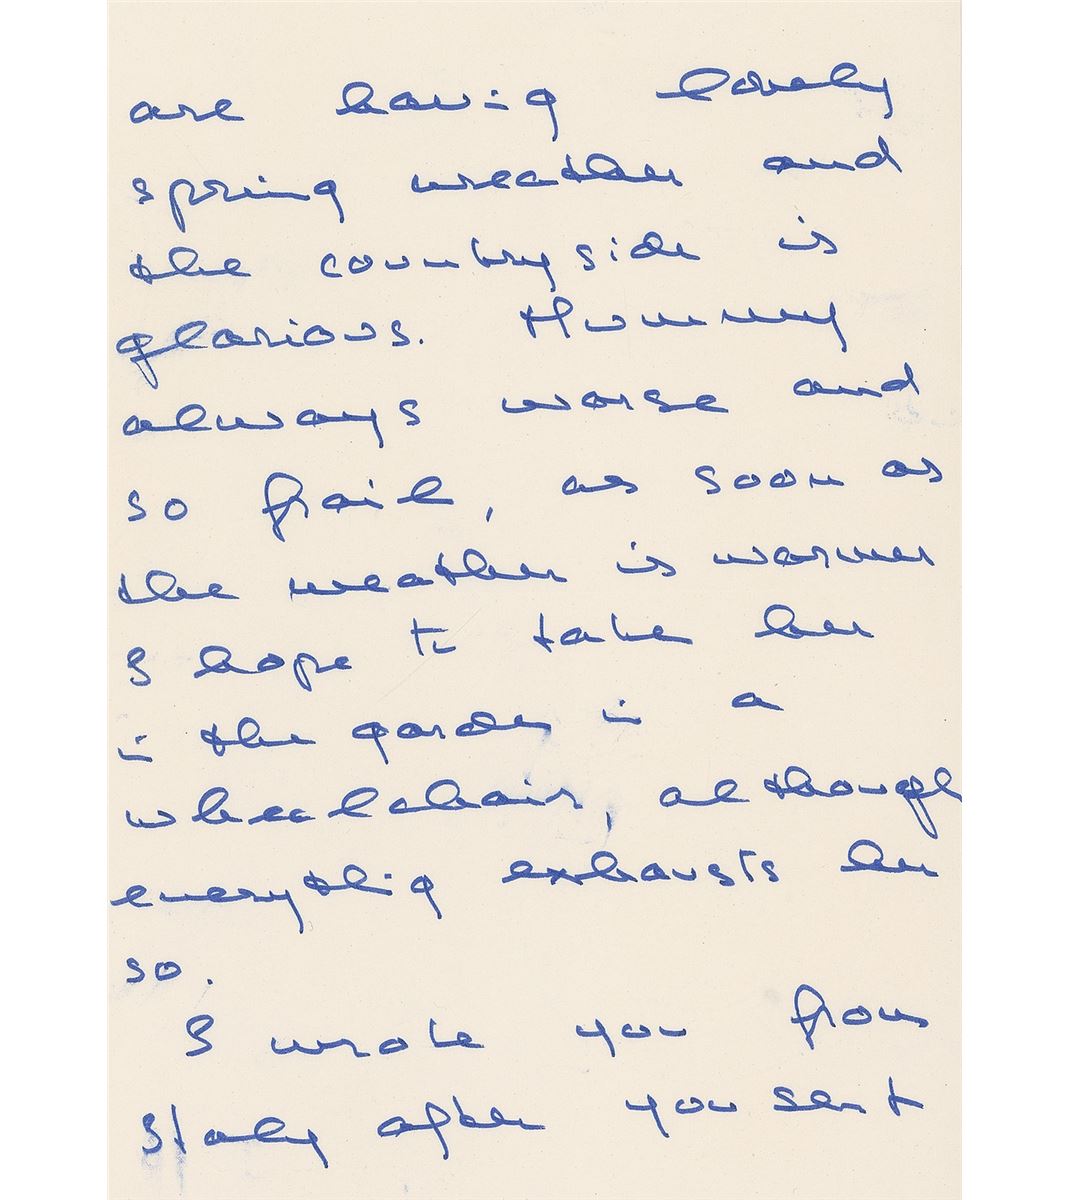 are having lovely
spring weather and
the countryside is
glorious. Mummy
always worse and
so frail, as soon as
the weather is warmer
I hope to take her
in the garden in a
wheelchair, although
everything exhausts her
so.
I wrote you from
Italy after you sent